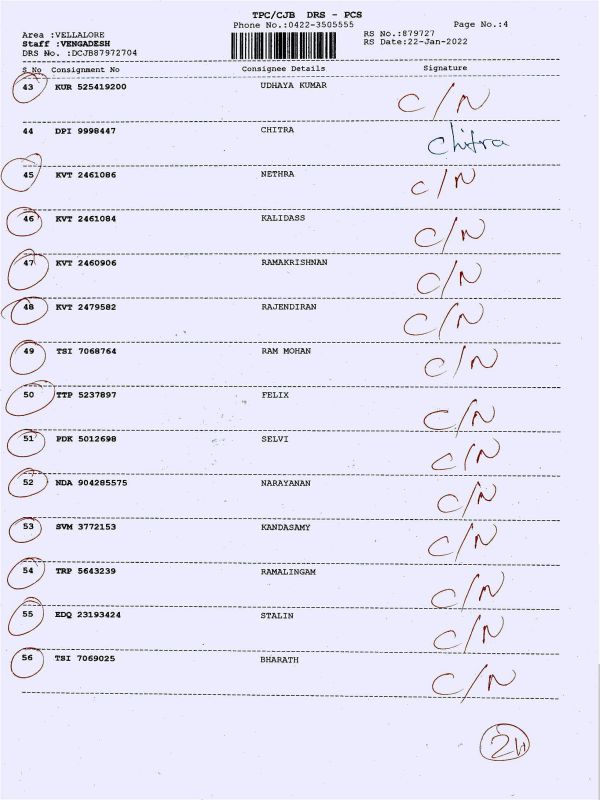 TPC/CJB DRS - PCS
Phone No.:0422-3505555 Page No.:4
Area :VELLALORE RS No.:879727
Staff :VENGADESH RS Date:22-Jan-2022
DRS No. :DCJB87972704
S No Consignment No Consignee Details Signature
43 KUR 525419200 UDHAYA KUMAR C/N
44 DPI 9998447 CHITRA Chitra
45 KVT 2461086 NETHRA C/N
46 KVT 2461084 KALIDASS C/N
47 KVT 2460906 RAMAKRISHNAN C/N
48 KVT 2479582 RAJENDIRAN C/N
49 TSI 7068764 RAM MOHAN C/N
50 TTP 5237897 FELIX C/N
51 PDK 5012698 SELVI C/N
52 NDA 904285575 NARAYANAN C/N
53 SVM 3772153 KANDASAMY C/N
54 TRP 5643239 RAMALINGAM C/N
55 EDQ 23193424 STALIN C/N
56 TSI 7069025 BHARATH C/N